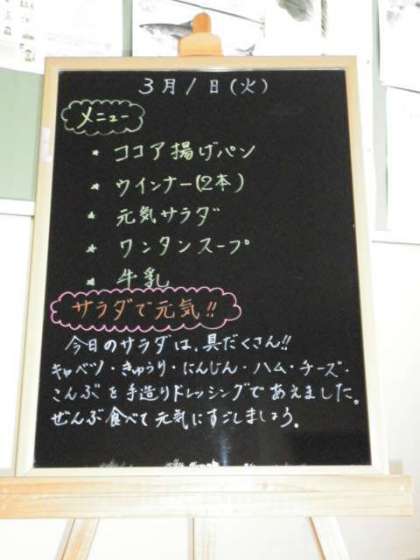 3月1日(火)
メニュー
* ココア揚げパン
* ウインナー(2本)
* 元気サラダ
* ワンタンスープ
* 牛乳
サラダで元気!!
今日のサラダは、具だくさん!!
キャベツ・きゅうり・にんじん・ハム・チーズ・
こんぶを手造りドレッシングであえました。
ぜんぶ食べて元気にすごしましょう。